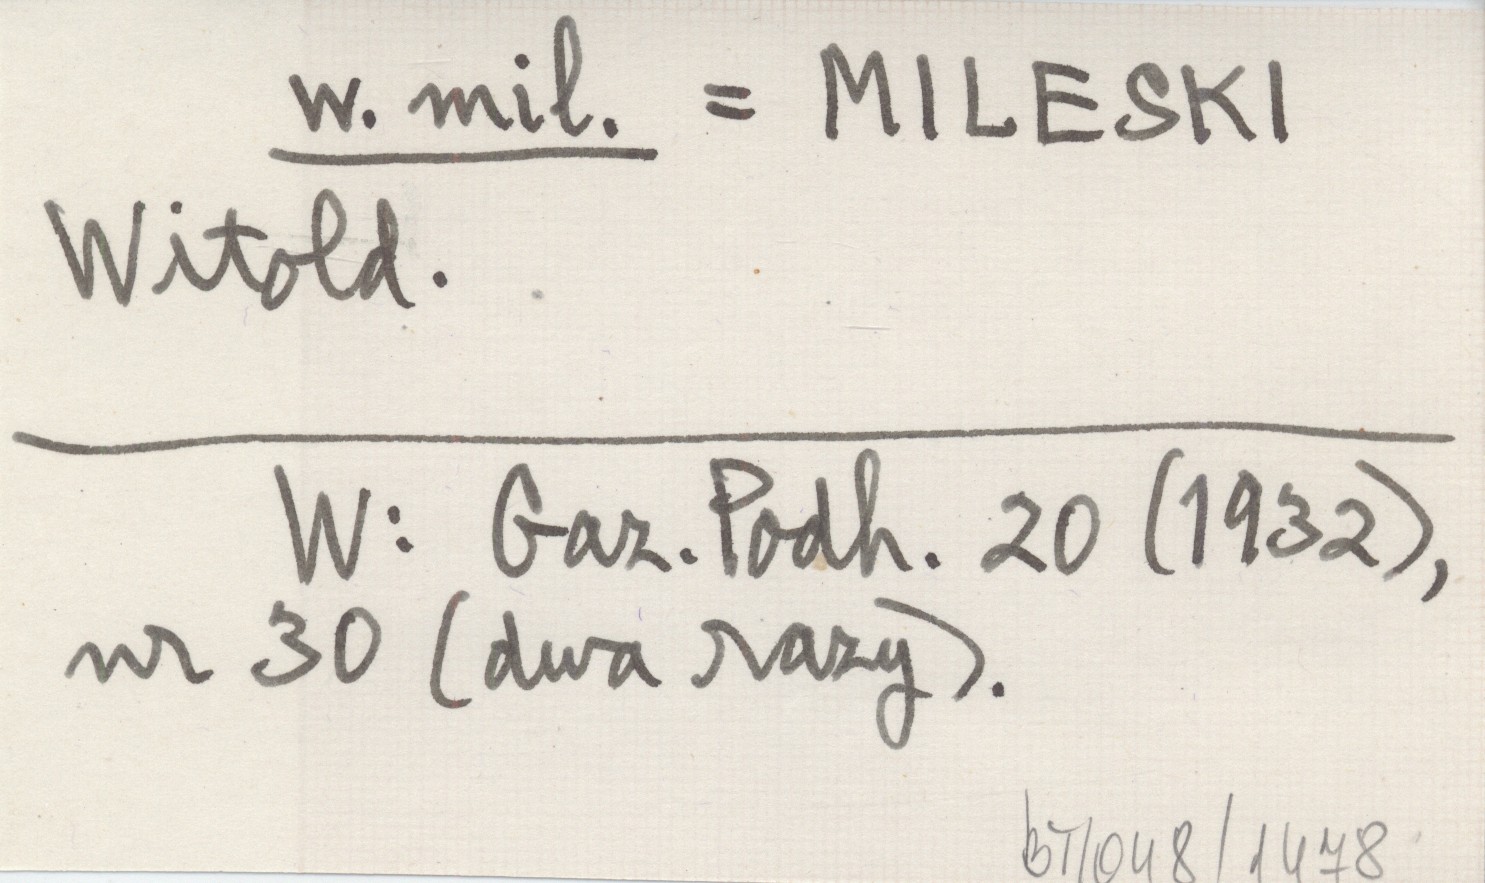 w. mil. = MILESKI
Witold.
W: Gaz. Podh. 20 (1932),
nr 30 (dwa razy).
bT/048/1478